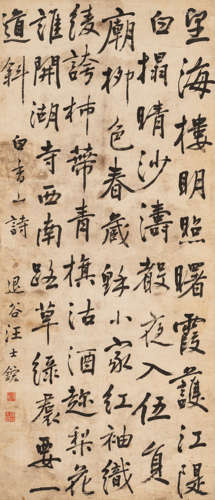 望海樓明照曙霞護江隄
白蹋晴沙濤聲夜入伍員
廟柳色春藏穌小家紅袖織
綾誇柿蔕青旗沽酒趂梨花
誰開湖寺西南路草綠裠要一
道斜
白香山詩
退谷汪士鋐